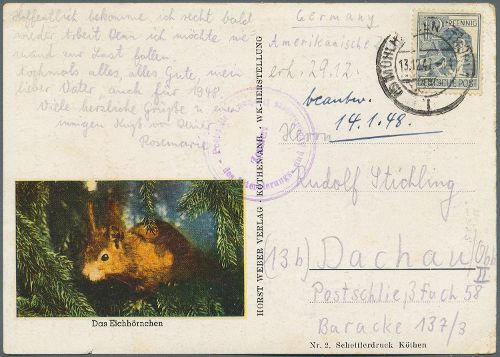 Hoffentlich bekomme ich recht bald
wieder Arbeit. Denn ich möchte nie-
mand zur Last fallen.
Nochmals alles, alles Gute, mein
lieber Vater, auch für 1948.
Viele herzliche Grüße u. einen
innigen Kuß von Deiner
Rosemarie
Germany
Amerikanische
erh. 29.12.
beantw.
14.1.48.
PFENNIG
DEUTSCHE POST
MÜHLHAUSEN
13.12.47
Herrn
Rudolf Stichling
(13b) Dachau/Obb
II
Postschließfach 58
Baracke 137/3
Das Eichhörnchen
HORST WEBER VERLAG · KÖTHEN/ANH. · WK-HERSTELLUNG
Nr. 2. Schettlerdruck Köthen